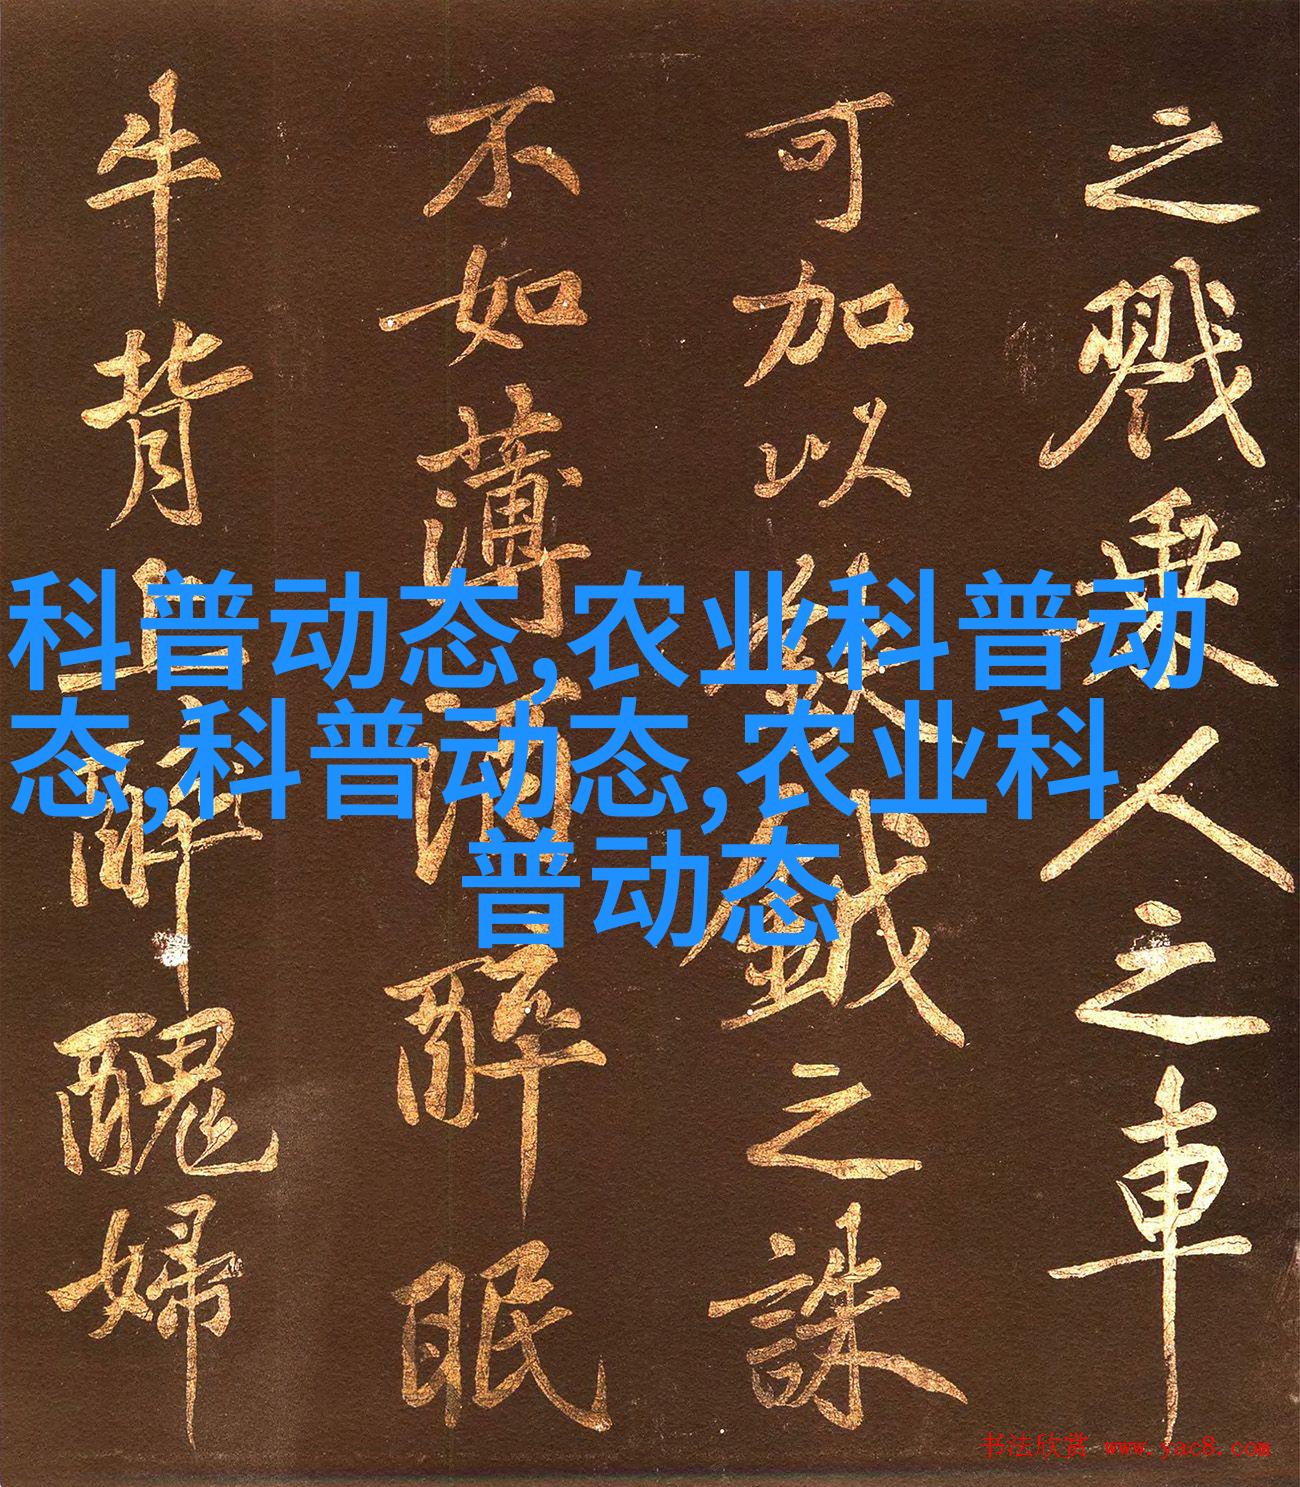 之戮乘人之車
可加以鈇鉞之誅
不如薄酒醉眠
牛背上醉醜婦
科普动态,农业科普动
态,科普动态,农业科
普动态
书法欣赏 www.yac8.com